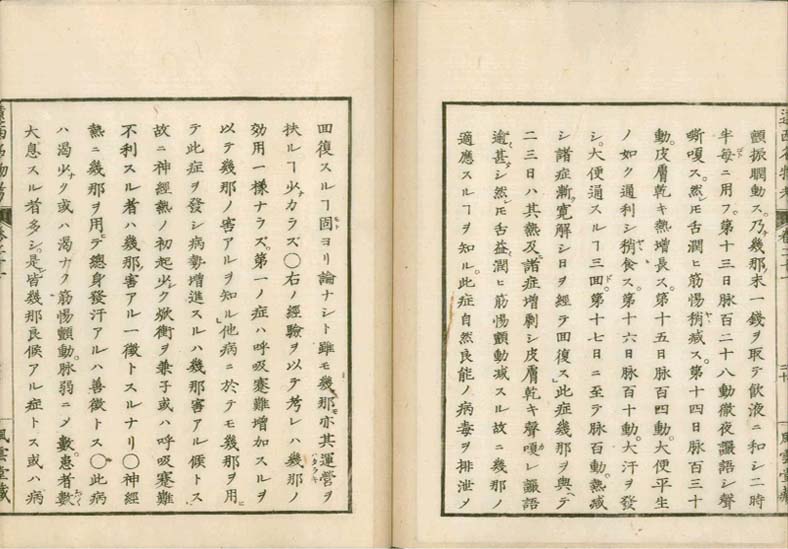 顫振瞤動ス。乃幾那末一錢ヲ取テ飮液ニ和シ二時
半每ニ用フ。第十三日脉百二十八動徹夜譫語シ聲
嘶嗄ス。然𪜈舌潤ヒ筋惕稍減ス。第十四日脉百三十
動。皮膚乾キ熱增長ス。第十五日脉百四動。大便平生
ノ如ク通利シ稍食ス。第十六日脉百十動。大汗ヲ發
シ。大便通スルヿ三囬。第十七日ニ至テ脉百動。熱減
シ諸症漸ク寛解シ日ヲ經テ囬復ス」此症幾那ヲ與ヘテ
二三日ハ其熱及諸症增劇シ皮膚乾キ聲嗄レ譫語
逾甚シ然𪜈舌益潤ヒ筋惕顫動減スル故ニ幾那ノ
適應スルヿヲ知ル。此症自然良能ノ病毒ヲ排泄メ
囬復スルヿ固ヨリ論ナシト雖モ幾那モ亦其運營ヲ
ハタラキ
扶ルヿ少カラス〇右ノ經驗ヲ以テ考レハ幾那ノ
効用一樣ナラス。第一ノ症ハ呼吸塞難增加スルヲ
以テ幾那ノ害アルヲ知ル」他病ニ於テモ幾那ヲ用ヒ
テ此症ヲ發シ病勢增進スルハ幾那害アル候トス
故ニ神經熱ノ初起少ク焮衝ヲ兼子或ハ呼吸塞難
不利スル者ハ幾那害アル一徵トスルナリ〇神經
熱ニ幾那ヲ用テ總身發汗アルハ善徵トス〇此病
ハ渴少ク或ハ渴ナク筋惕顫動。脉弱ニメ數。患者數
大息スル者多シ。是皆幾那良候アル症トス或ハ病
卷二十
二十
風雲堂藏
遠西名物考
風雲堂藏